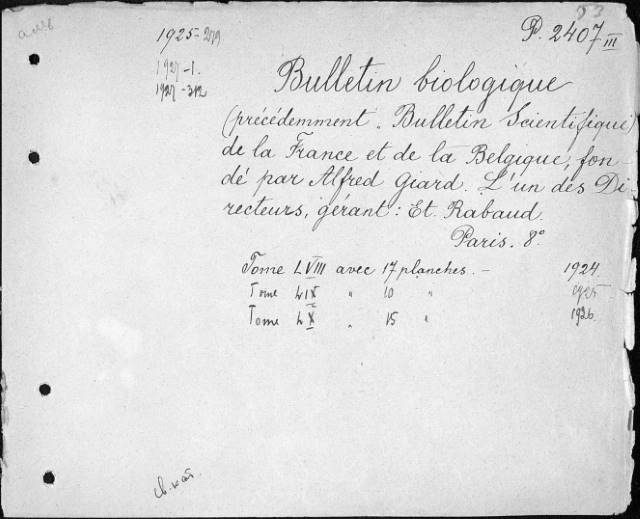 83
1925-279
P. 2407 III
1927-1.
1927-312
Bulletin biologique
(précédemment. Bulletin Scientifique)
de la France et de la Belgique, fon-
dé par Alfred Giard. L'un des Di-
recteurs, gérant: Et. Rabaud.
Paris. 8°
Tome LVIII avec 17 planches. - 1924.
Tome LIX " 10 " 1925
Tome LX " 15 " 1926
св. кат.